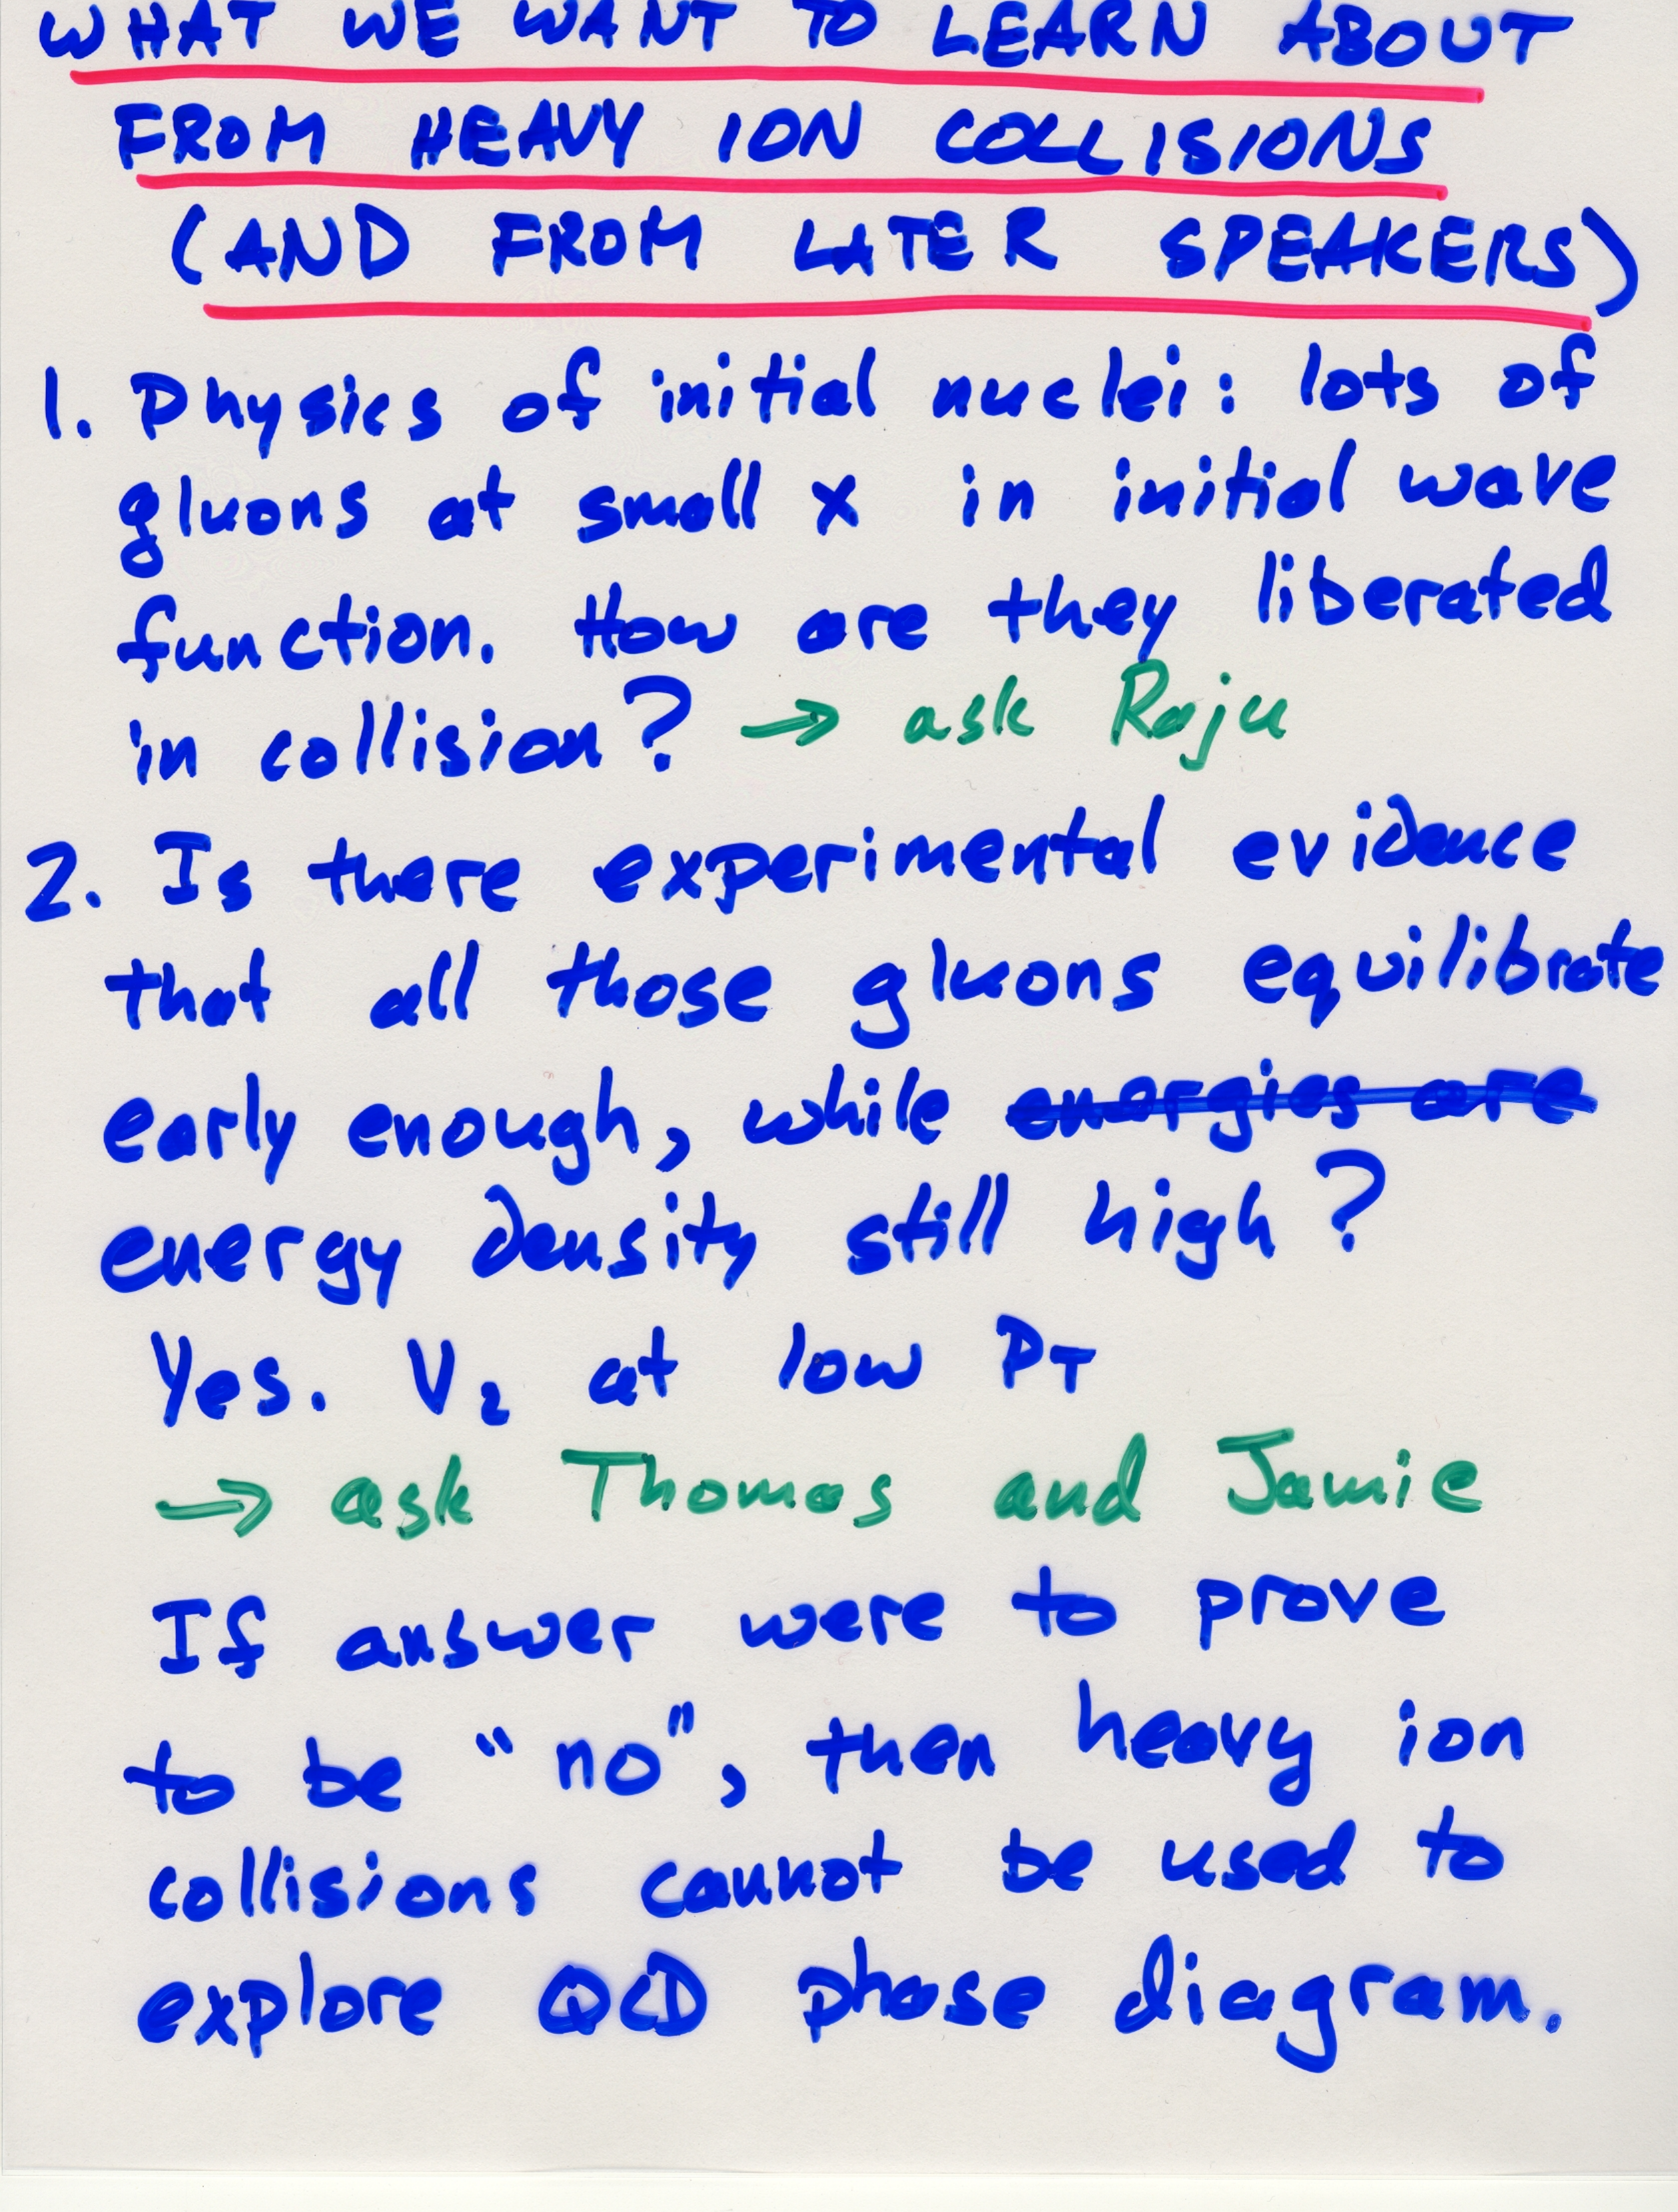 WHAT WE WANT TO LEARN ABOUT
FROM HEAVY ION COLLISIONS
(AND FROM LATER SPEAKERS)
1. Physics of initial nuclei: lots of
gluons at small x in initial wave
function. How are they liberated
in collision? → ask Raju
2. Is there experimental evidence
that all those gluons equilibrate
early enough, while energies are
energy density still high?
Yes. V₂ at low PT
→ ask Thomas and Jamie
If answer were to prove
to be "no", then heavy ion
collisions cannot be used to
explore QCD phase diagram.